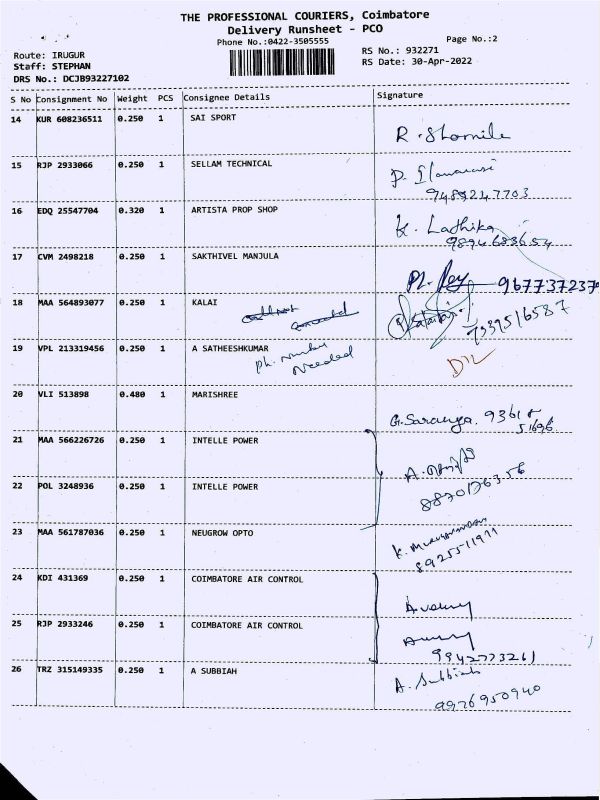 THE PROFESSIONAL COURIERS, Coimbatore
Delivery Runsheet - PCO
Phone No.:0422-3505555
Page No.:2
Route: IRUGUR
Staff: STEPHAN
DRS No.: DCJB93227102
RS No.: 932271
RS Date: 30-Apr-2022
S No Consignment No Weight PCS Consignee Details Signature
14 KUR 608236511 0.250 1 SAI SPORT
15 RJP 2933066 0.250 1 SELLAM TECHNICAL
9489247703
16 EDQ 25547704 0.320 1 ARTISTA PROP SHOP K. Ladhika
9894683654
17 CVM 2498218 0.250 1 SAKTHIVEL MANJULA
967737237
18 MAA 564893077 0.250 1 KALAI
7539516587
19 VPL 213319456 0.250 1 A SATHEESHKUMAR
Ph. Number
Needed
20 VLI 513898 0.480 1 MARISHREE
G. Saranya. 9361
51696
21 MAA 566226726 0.250 1 INTELLE POWER
22 POL 3248936 0.250 1 INTELLE POWER
23 MAA 561787036 0.250 1 NEUGROW OPTO
8925511911
24 KDI 431369 0.250 1 COIMBATORE AIR CONTROL
25 RJP 2933246 0.250 1 COIMBATORE AIR CONTROL
9942773261
26 TRZ 315149335 0.250 1 A SUBBIAH A. Subbiah
9976950940